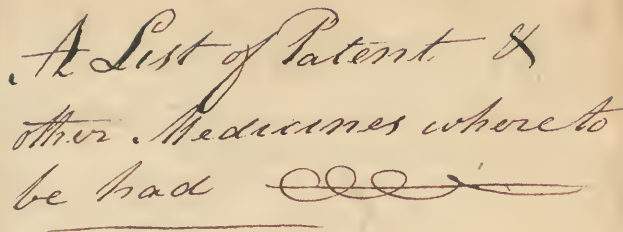 A List of Patent &
other Medicines where to
be had